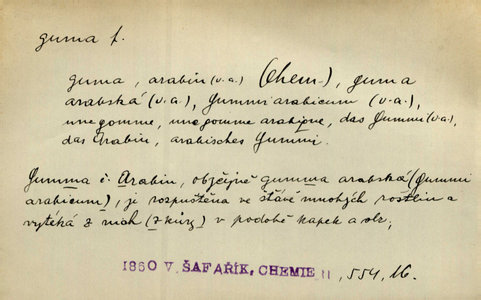 guma f.
guma, arabin (v.a.) (Chem.), guma
arabská (v.a.), Gummi arabicum (v.a.),
une gomme, une gomme arabique, das Gummi (v.a.),
das Arabin, arabisches Gummi.
Gumma č. Arabin, obyčejně gumma arabská (Gummi
arabicum), je rozpuštěna ve šťávě mnohých rostlin a
vytéká z nich (z kůry) v podobě kapek a slz,
1860 V. ŠAFAŘÍK, CHEMIE II, 554, 16.